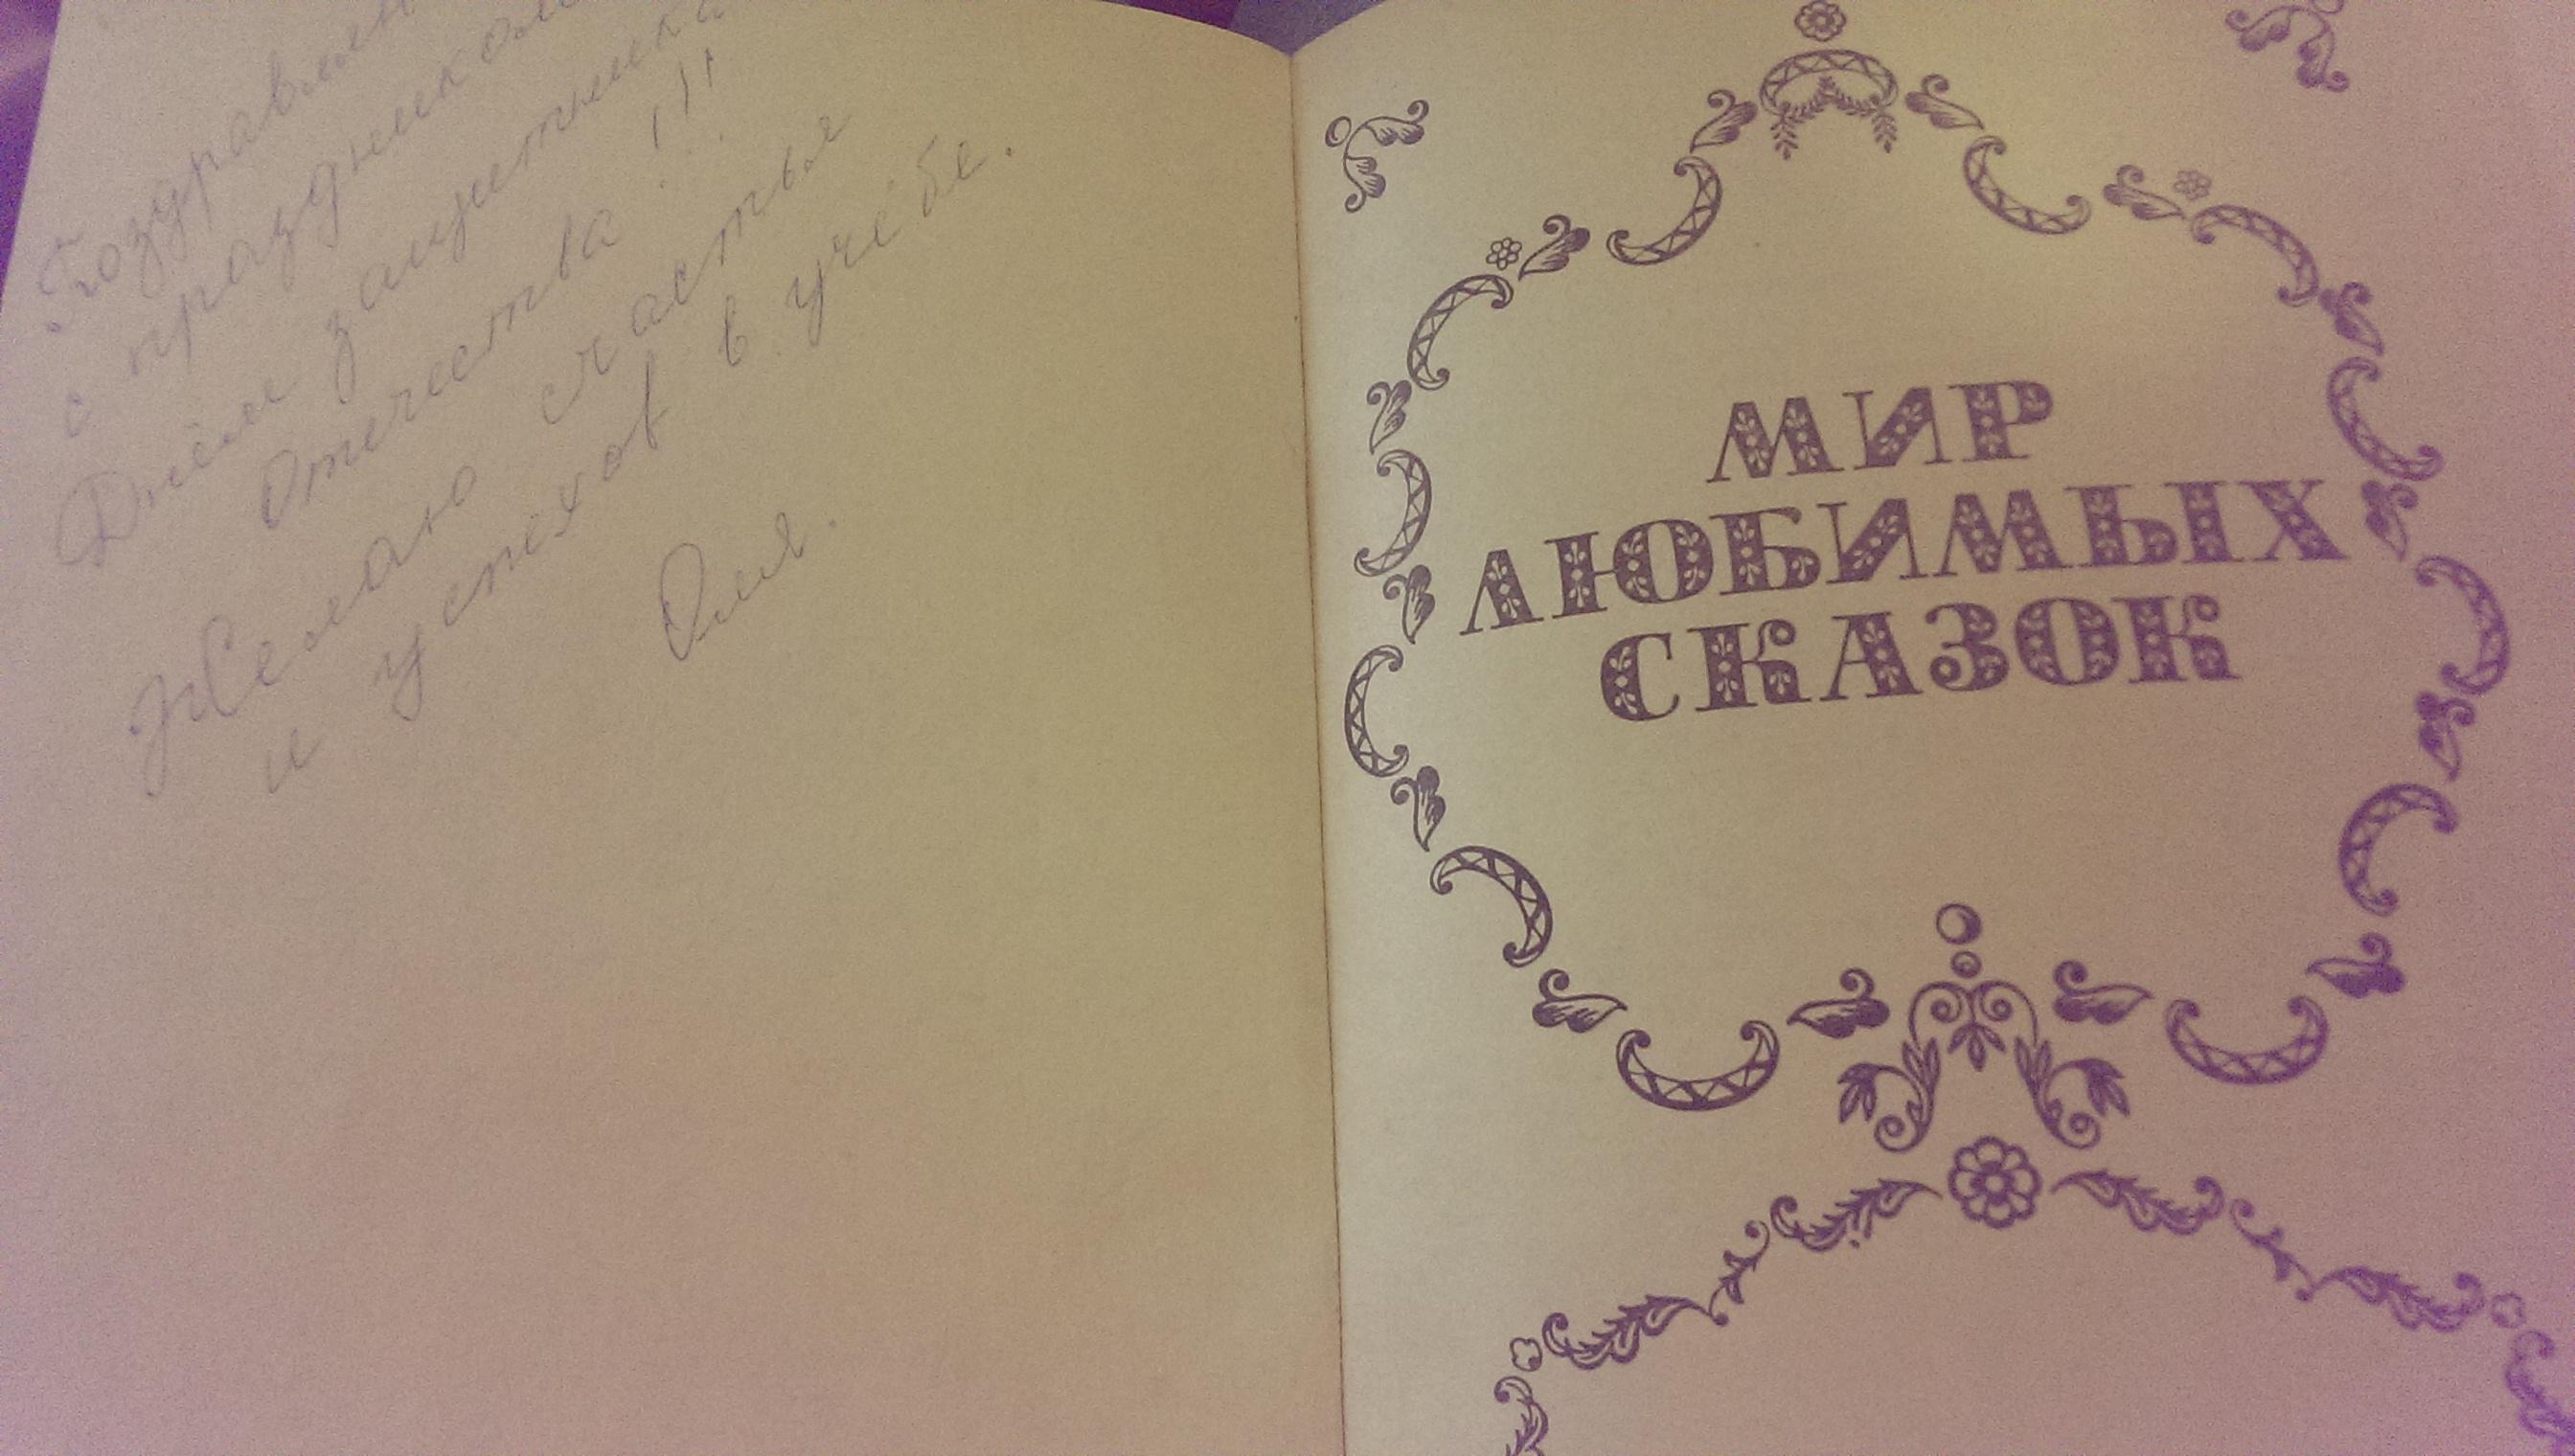 Поздравляю
с праздником
Днём защитника
Отечества!!!
Желаю счастья
и успехов в учёбе.
Оля.
МИР
ЛЮБИМЫХ
СКАЗОК